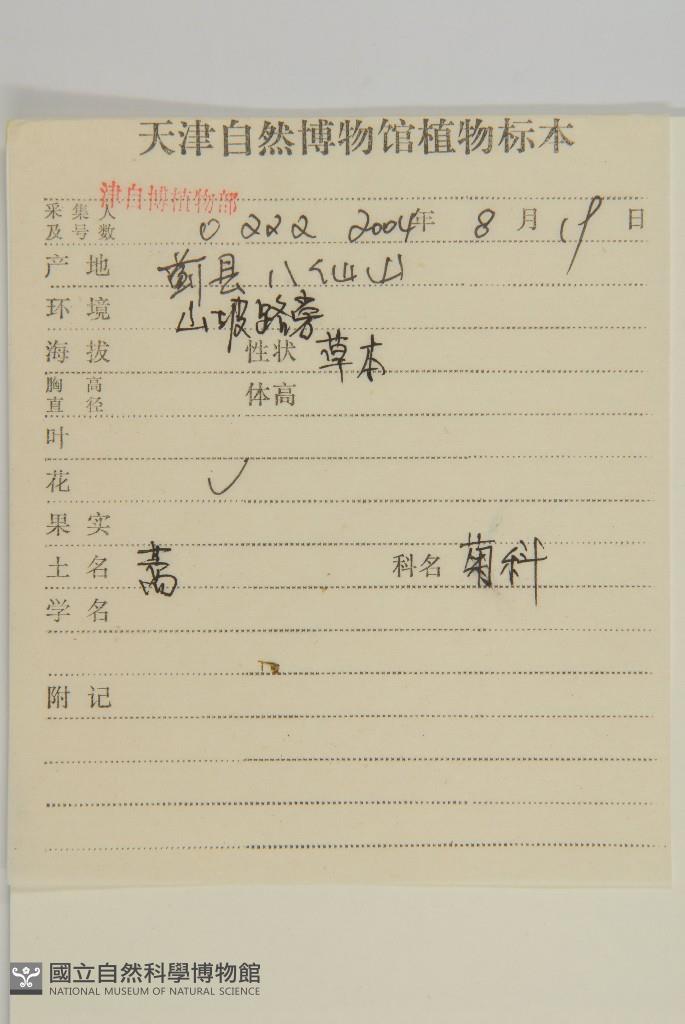 天津自然博物馆植物标本
津自博植物部
采集人及号数 0222 2004年 8月 19日
产地 蓟县八仙山
环境 山坡路旁
海拔 性状 草本
胸高直径 体高
叶
花 ✓
果实
土名 蒿 科名 菊科
学名
附记
國立自然科學博物館
NATIONAL MUSEUM OF NATURAL SCIENCE